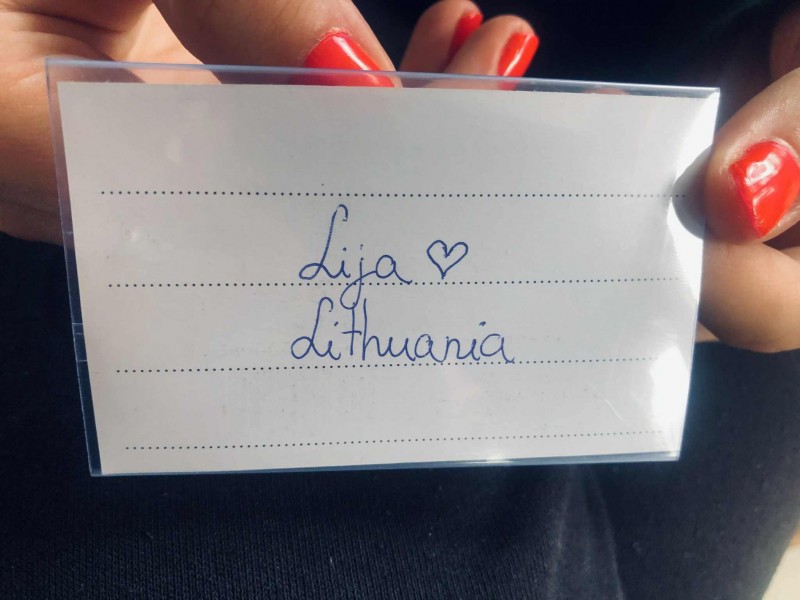 Lija ♡
Lithuania